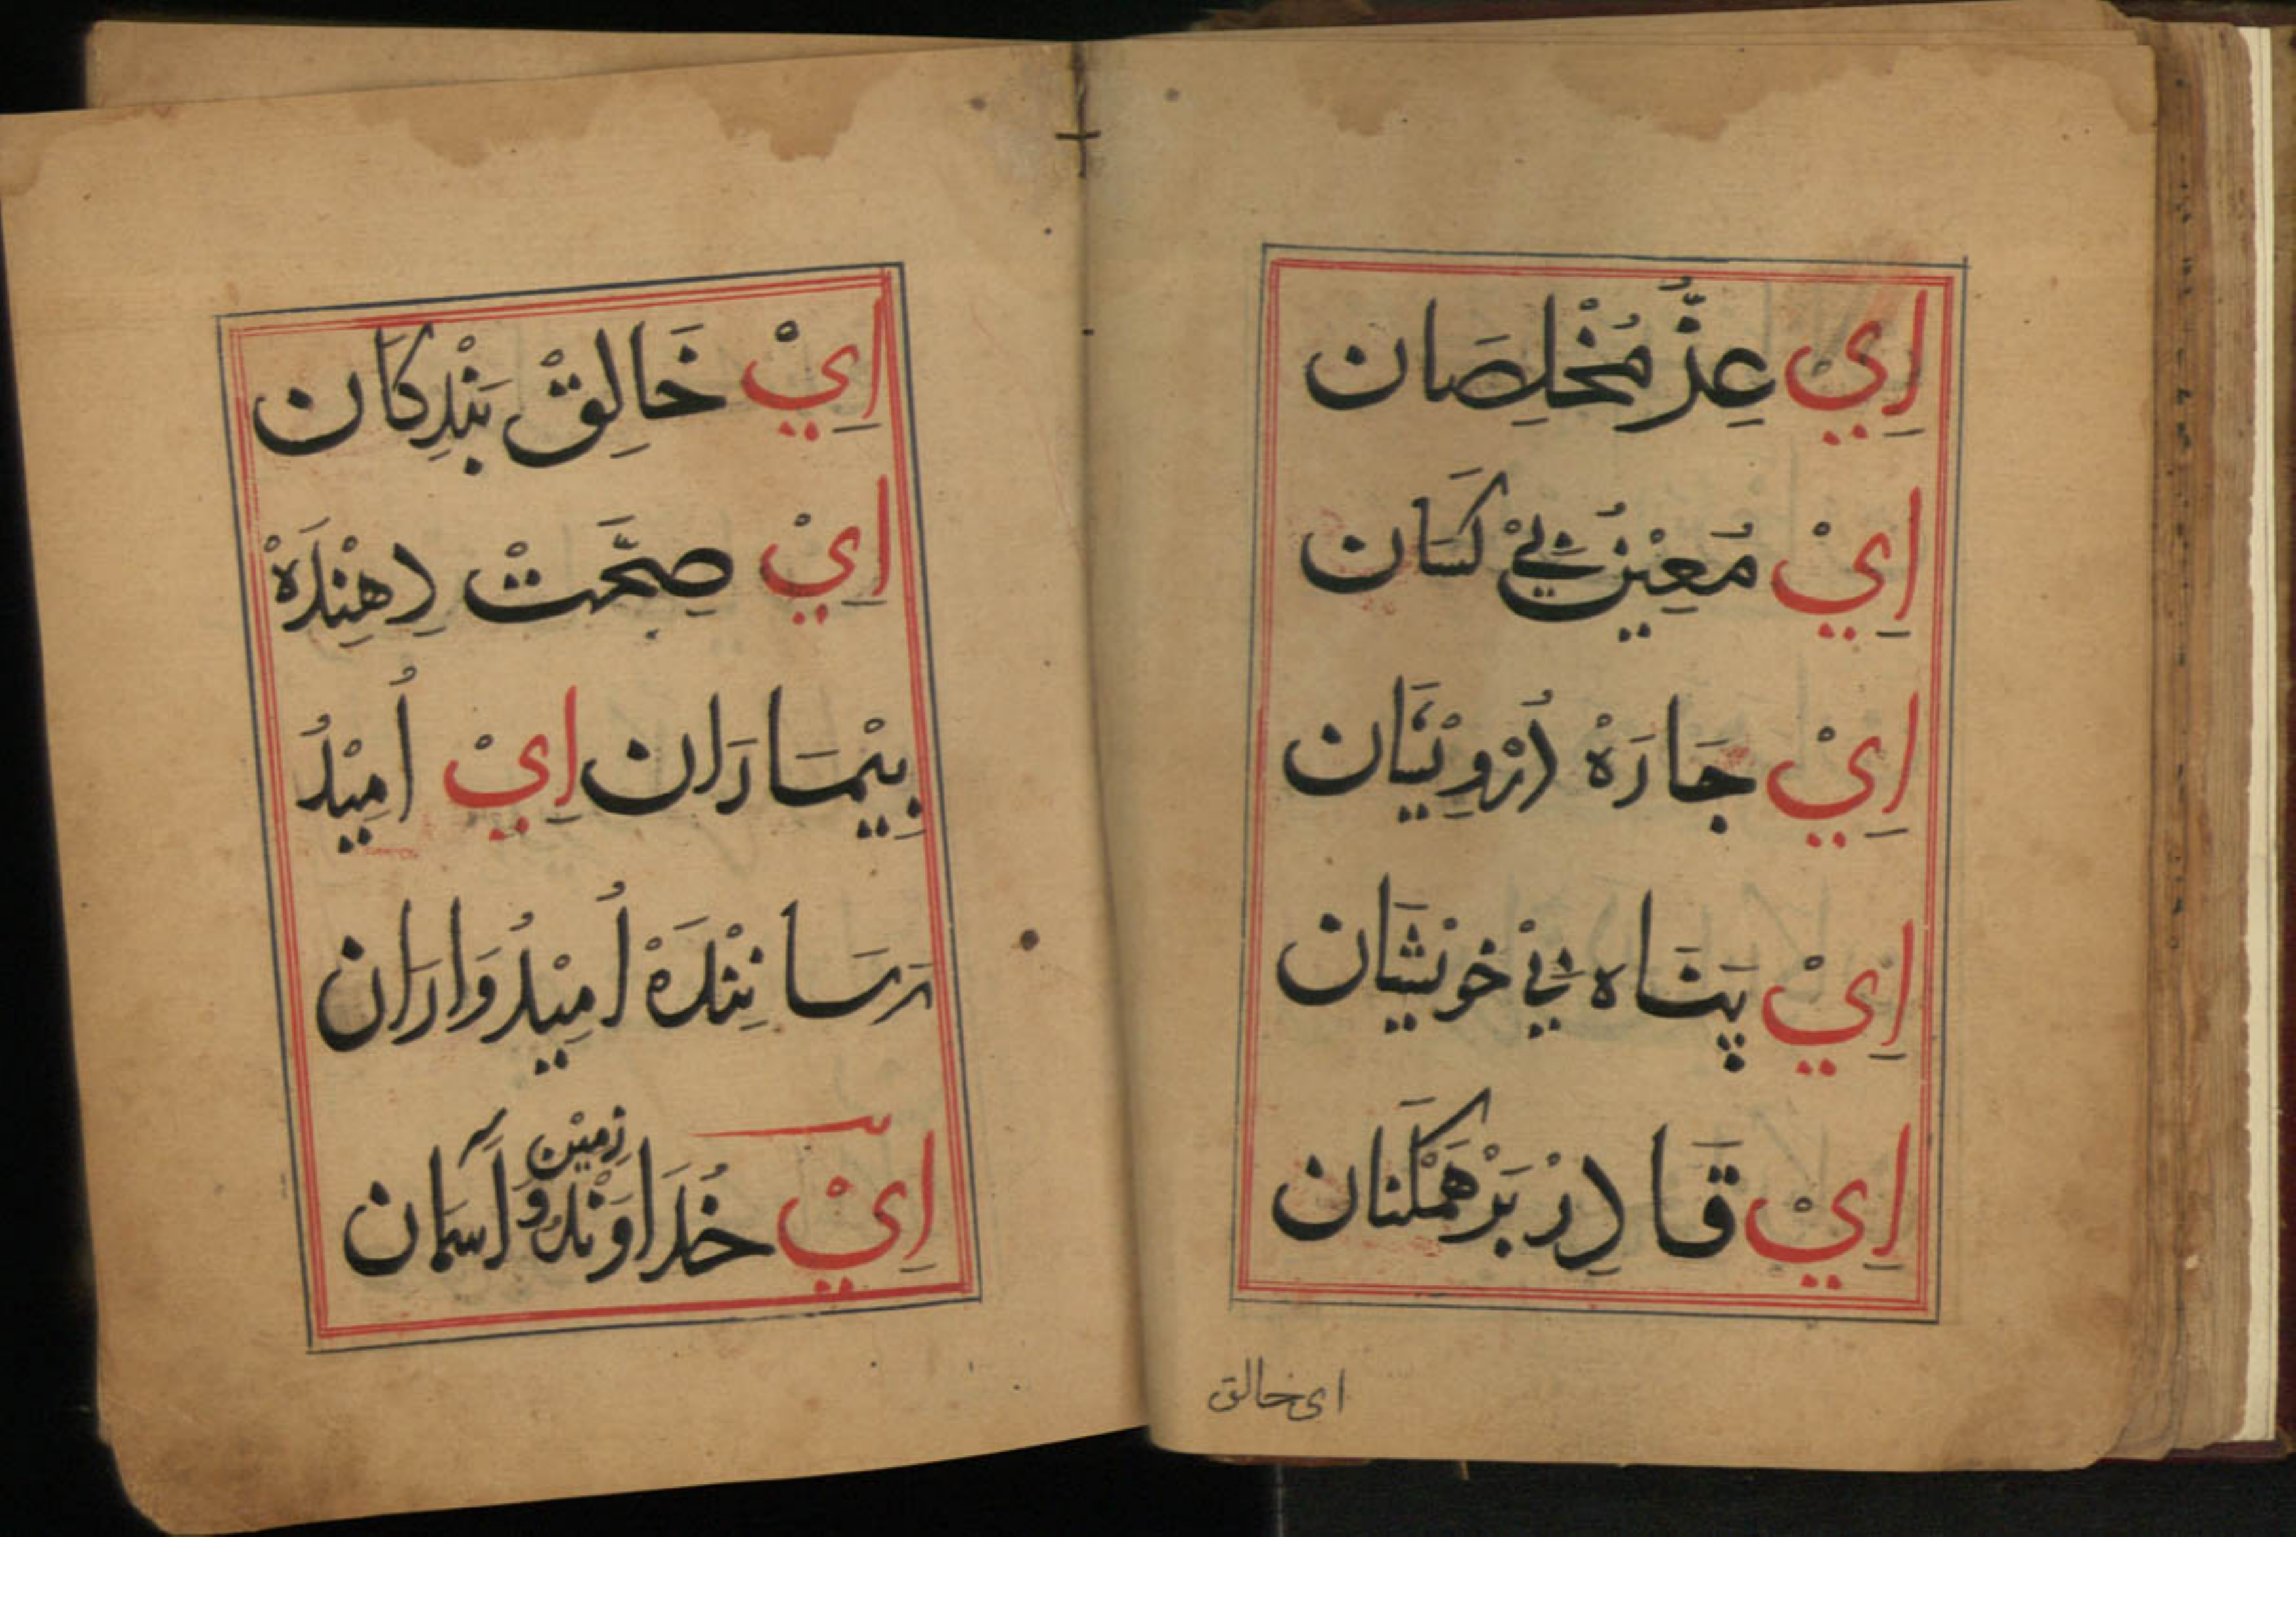 اِيْ عِزُّ مُخْلِصَان
اِيْ مُعِيْنُ بِيْ كَسَان
اِيْ جَارَهْ دُرْوِيْشَان
اِيْ پَنَاه بِيْ خويْشَان
اِيْ قَادِرْ بَرْ هَمْكَنَان
اى خالق
اِيْ خَالِقْ بَنْدِكَان
اِيْ صِحَّتْ دِهِنْدَهْ
بِيْمَارَان اِيْ اُمِيْدُ
رَسَانِنْدَهْ اُمِيْدُوَارَان
اِيْ خُدَاوَنْدُ زِمِيْن وَ آسَمان